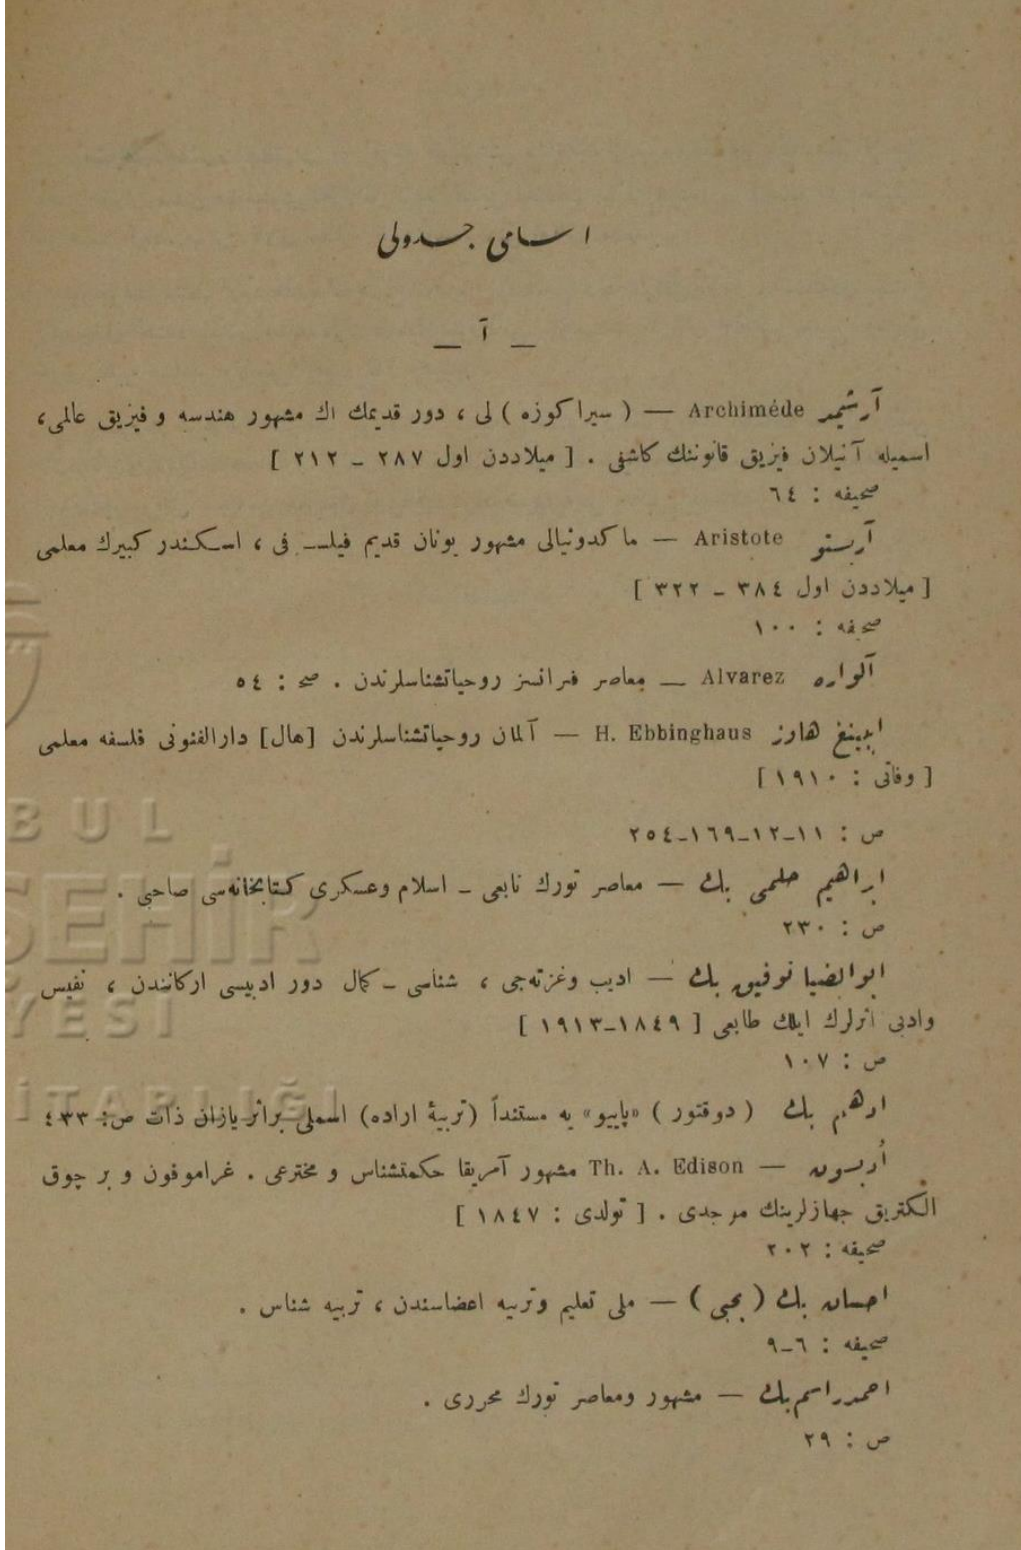 اسامی جدولی
— آ —
آرشمید Archiméde — ( سیراکوزه ) لی ، دور قدیمك اك مشهور هندسه و فیزیق عالمی ،
اسمیله آنیلان فیزیق قانوننك كاشفی . [ میلاددن اول ٢٨٧ — ٢١٢ ]
صحیفه : ٦٤
آریستو Aristote — ماكدونیالی مشهور یونان قدیم فیلسـ فی ، اسكندر كبیرك معلمی
[ میلاددن اول ٣٨٤ — ٣٢٢ ]
صحیفه : ١٠٠
آلواره Alvarez — معاصر فرانسز روحیاتشناسلرندن . صح : ٥٤
ابینغ هاوز H. Ebbinghaus — آلمان روحیاتشناسلرندن [هال] دارالفنونی فلسفه معلمی
[ وفاتی : ١٩١٠ ]
ص : ١١-١٢-١٦٩-٢٥٤
ابراهیم حلمی بك — معاصر تورك نابعی - اسلام وعسكری كتابخانه‌سی صاحبی .
ص : ٢٣٠
ابوالضیا توفیق بك — ادیب وغزته‌جی ، شناسی - كمال دور ادبیسی اركانندن ، نفیس
وادبی اثرلرك ایلك طابعی [ ١٨٤٩-١٩١٣ ]
ص : ١٠٧
ادهم بك ( دوقتور ) «پاییو» یه مستنداً (تربیهٔ اراده) اسملی براثر یازان ذات ص: ٤٣٣
أدیسون — Th. A. Edison مشهور آمریقا حكمتشناس و مخترعی . غراموفون و بر چوق
الكتریق جهازلرینك موجدی . [ تولدی : ١٨٤٧ ]
صحیفه : ٢٠٢
احسان بك ( بحبی ) — ملی تعلیم وتربیه اعضاسندن ، تربیه شناس .
صحیفه : ٦-٩
احمد راسم بك — مشهور ومعاصر تورك محرری .
ص : ٢٩
BUL
ŞEHİR
YESİ
İTAPLIĞI